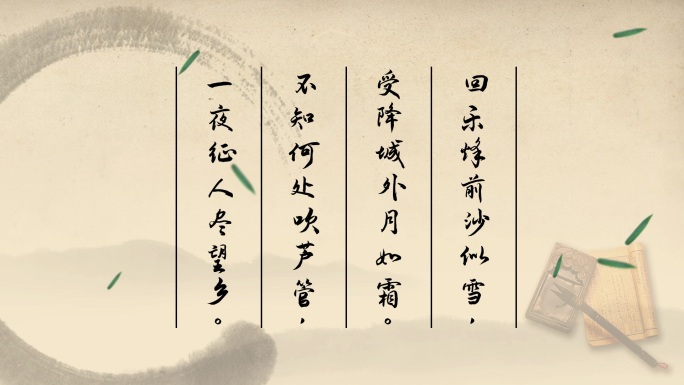 回乐烽前沙似雪，
受降城外月如霜。
不知何处吹芦管，
一夜征人尽望乡。